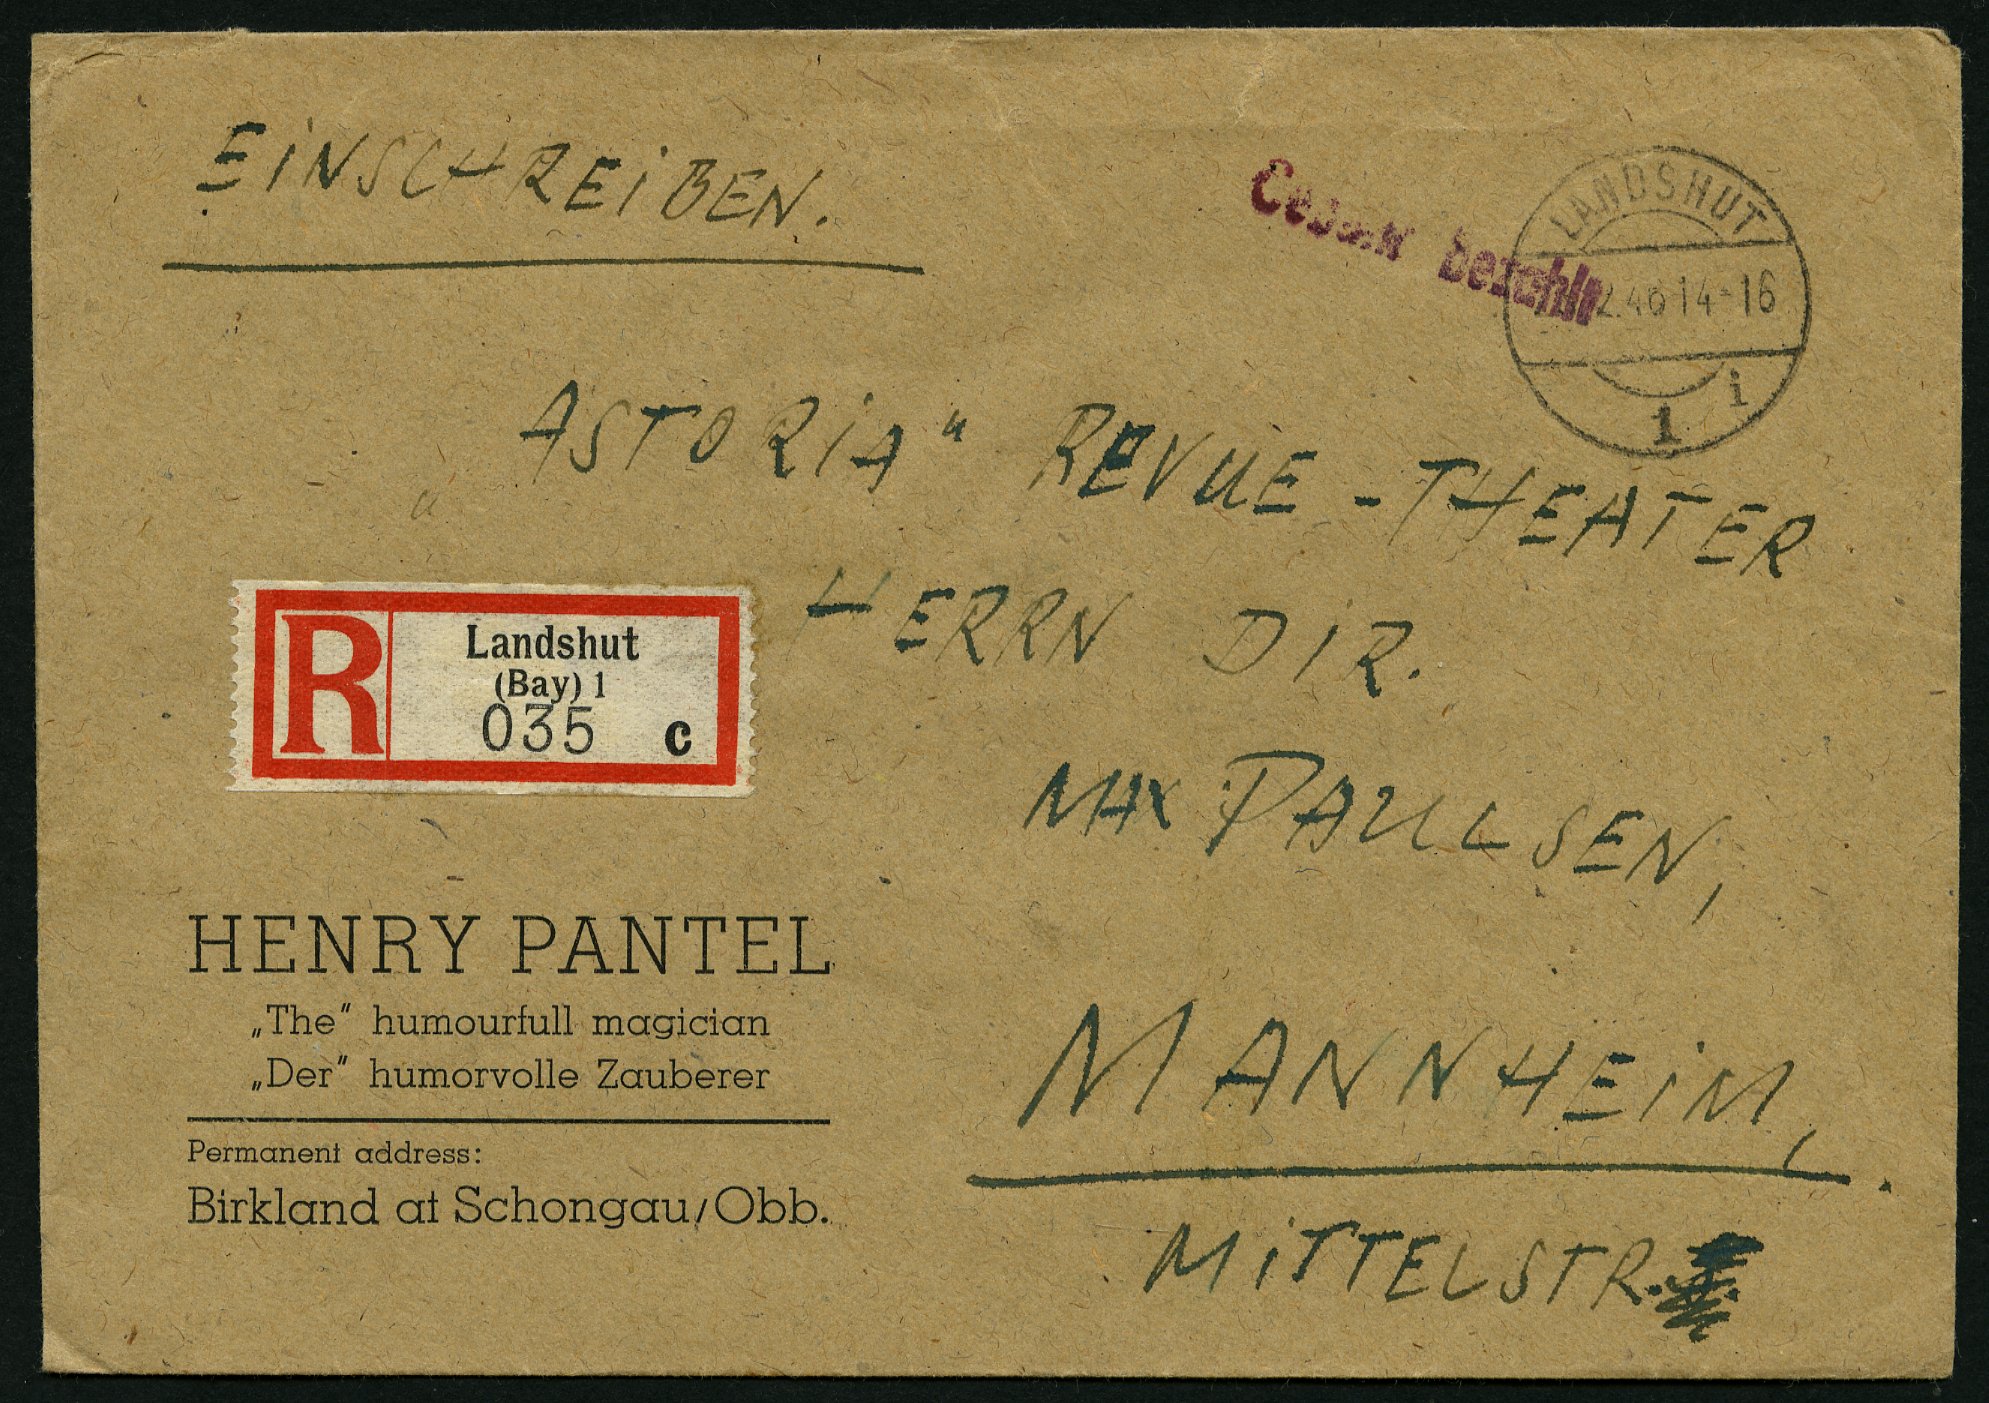 EINSCHREIBEN.
bezahlt
LANDSHUT
2.46 14-16
1 i
„ASTORIA“ REVUE-THEATER
HERRN DIR.
MAX PAULSEN,
MANNHEIM,
MITTELSTR.
R
Landshut
(Bay) 1
035 c
HENRY PANTEL
„The“ humourfull magician
„Der“ humorvolle Zauberer
Permanent address:
Birkland at Schongau/Obb.